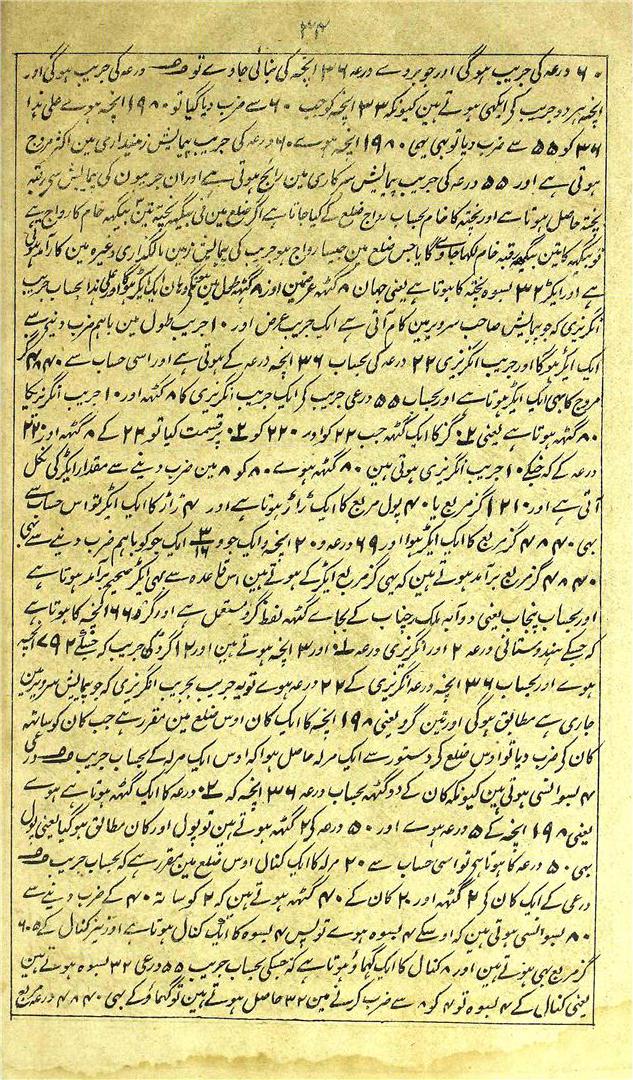 ۲۳۴
۶۰ درعہ کی جریب ہوگی اور جو بروے درعہ ۳۶ انچہ کی بنائی جاوے تو درعہ کی جریب ہوگی اور
انچہ ہر دو جریب کی ایکہی ہوتے ہین کیونکہ ۳۳ انچہ کو جب ۶۰ سے ضرب دیا گیا تو ۱۹۸۰ انچہ ہوے علی ہذا
۳۶ کو ۵۵ سے ضرب دیا تو بہی یہی ۱۹۸۰ انچہ ہوے ۶۰ درعہ کی جریب پیمایش زمینداری مین اکثر مروج
ہوتی ہے اور ۵۵ درعہ کی جریب پیمایش سرکاری مین رائج ہوتی ہے اور ان جریبون کی پیمایش سے رقبہ
پختہ حاصل ہوتا ہے اور پختہ کا خام بحساب رواج ضلع کے کیا جاتا ہے اگر ضلع مین فی بیگہہ پختہ تین بیگہہ خام کا رواج ہے
تو بیگہہ کا تین بیگہہ رقبہ خام لکہا جاویگا یا جس ضلع مین جیسا رواج ہو جریب کی پیمایش زمین مالگذاری وغیرہ مین کارآمد ہوتی
ہے اور ایکڑ ۳۲ بسوہ پختہ کا ہوتا ہے یعنی جہان ۸ گٹہہ عرض مین اور ۸۰ گٹہہ طول مین ہونگی وہان ایک ایکڑ ہوگا اور علی ہذا بحساب جریب
انگریزی کہ جو پیمایش صاحب سرویر مین کام آتی ہے ایک جریب عرض اور ۱۰ جریب طول مین باہم ضرب دینے سے
ایک ایکڑ ہوگا اور جریب انگریزی ۲۲ درعہ کی بحساب ۳۶ انچہ درعہ کے ہوتی ہے اور اسی حساب سے ۴۸۴۰ گز
مروج کا بہی ایک ایکڑ ہوتا ہے اور بحساب ۵۵ درعی جریب کی ایک جریب انگریزی کا ۸ گٹہہ اور ۱۰ جریب انگریزی کا
۸۰ گٹہہ ہوتا ہے یعنی گز کا ایک گٹہہ جب ۲۲ کو اور ۲۲۰ کو پر قسمت کیا تو ۲۲ کے ۸ گٹہہ اور ۲۲۰
درعہ کے کہ جنکے ۱۰ جریب انگریزی ہوتی ہین ۸۰ گٹہہ ہوے ۸۰ کو ۸ مین ضرب دینے سے مقدار ایکڑ کی نکل
آتی ہے اور ۱۲۱۰ گز مربع یا ۴۰ پول مربع کا ایک راڑ ہوتا ہے اور ۴ راڑ کا ایک ایکڑ تو اس حساب سے
بہی ۴۸۴۰ گز مربع کا ایک ایکڑ ہوا اور ۶۹ درعہ و ۲۰ انچہ و ایک جو و ۳/۱۶ ایک جو کو باہم ضرب دینے سے بہی
۴۸۴۰ گز مربع برآمد ہوتے ہین کہ یہی گز مربع ایکڑ کے ہوتے ہین اس قاعدہ سے بہی ایکڑ صحیح برآمد ہوتا ہے
اور بحساب پنجاب یعنی دوآبہ ملک چناب کے بجاے گٹہہ لفظ گرو مستعمل ہے اور گرو ۶۶ انچہ کا ہوتا ہے
کہ جسکے ہندوستانی درعہ ۲ اور انگریزی درعہ اور ۳ انچہ ہوتے ہین اور ۱۲ گرو کی جریب کہ جسکے ۷۹۲ انچہ
ہوے اور بحساب ۳۶ انچہ درعہ انگریزی کے ۲۲ درعہ ہوے تو یہ جریب بجریب انگریزی کہ جو پیمایش سرویر مین
جاری ہے مطابق ہوگی اور تین گرو یعنی ۱۹۸ انچہ کا ایک کان اوس ضلع مین مقرر ہے جب کان کو ساتہہ
کان کی ضرب دیا تو اوس ضلع کی دستور سے ایک مرلہ حاصل ہوا کہ اوس ایک مرلہ کے بحساب جریب درعی
۴ بسوانسی ہوتی ہین کیونکہ کان کے دو گٹہہ بحساب درعہ ۳۶ انچہ کہ درعہ کا ایک گٹہہ ہوتا ہے ہوے
یعنی ۱۹۸ انچہ کے درعہ ہوے اور درعہ کی ۲ گٹہہ ہوتے ہین تو پول اور کان مطابق ہوگیا یعنی پول
بہی درعہ کا ہوتا ہے تو اسی حساب سے ۲۰ مرلہ کا ایک کنال اوس ضلع مین مقرر ہے کہ بحساب جریب
درعی کے ایک کان کی ۲ گٹہہ اور ۲۰ کان کے ۴۰ گٹہہ ہوتے ہین کہ ۲ کو ساتہہ ۴۰ کے ضرب دینے سے
۸۰ بسوانسی ہوتی ہین کہ اوسکے ۴ بسوہ ہوے تو پس ۴ بسوہ کا ایک کنال ہوتا ہے اور نیز کنال کے ۶۰۵
گز مربع بہی ہوتے ہین اور ۸ کنال کا ایک گہماؤ ہوتا ہے کہ جسکی بحساب جریب ۵۵ درعی ۳۲ بسوہ ہوتے ہین
یعنی کنال کے ۴ بسوہ تو ۴ کو ۸ سے ضرب کرنے مین ۳۲ حاصل ہوتے ہین تو گہماؤ کے بہی ۴۸۴۰ درعہ مربع